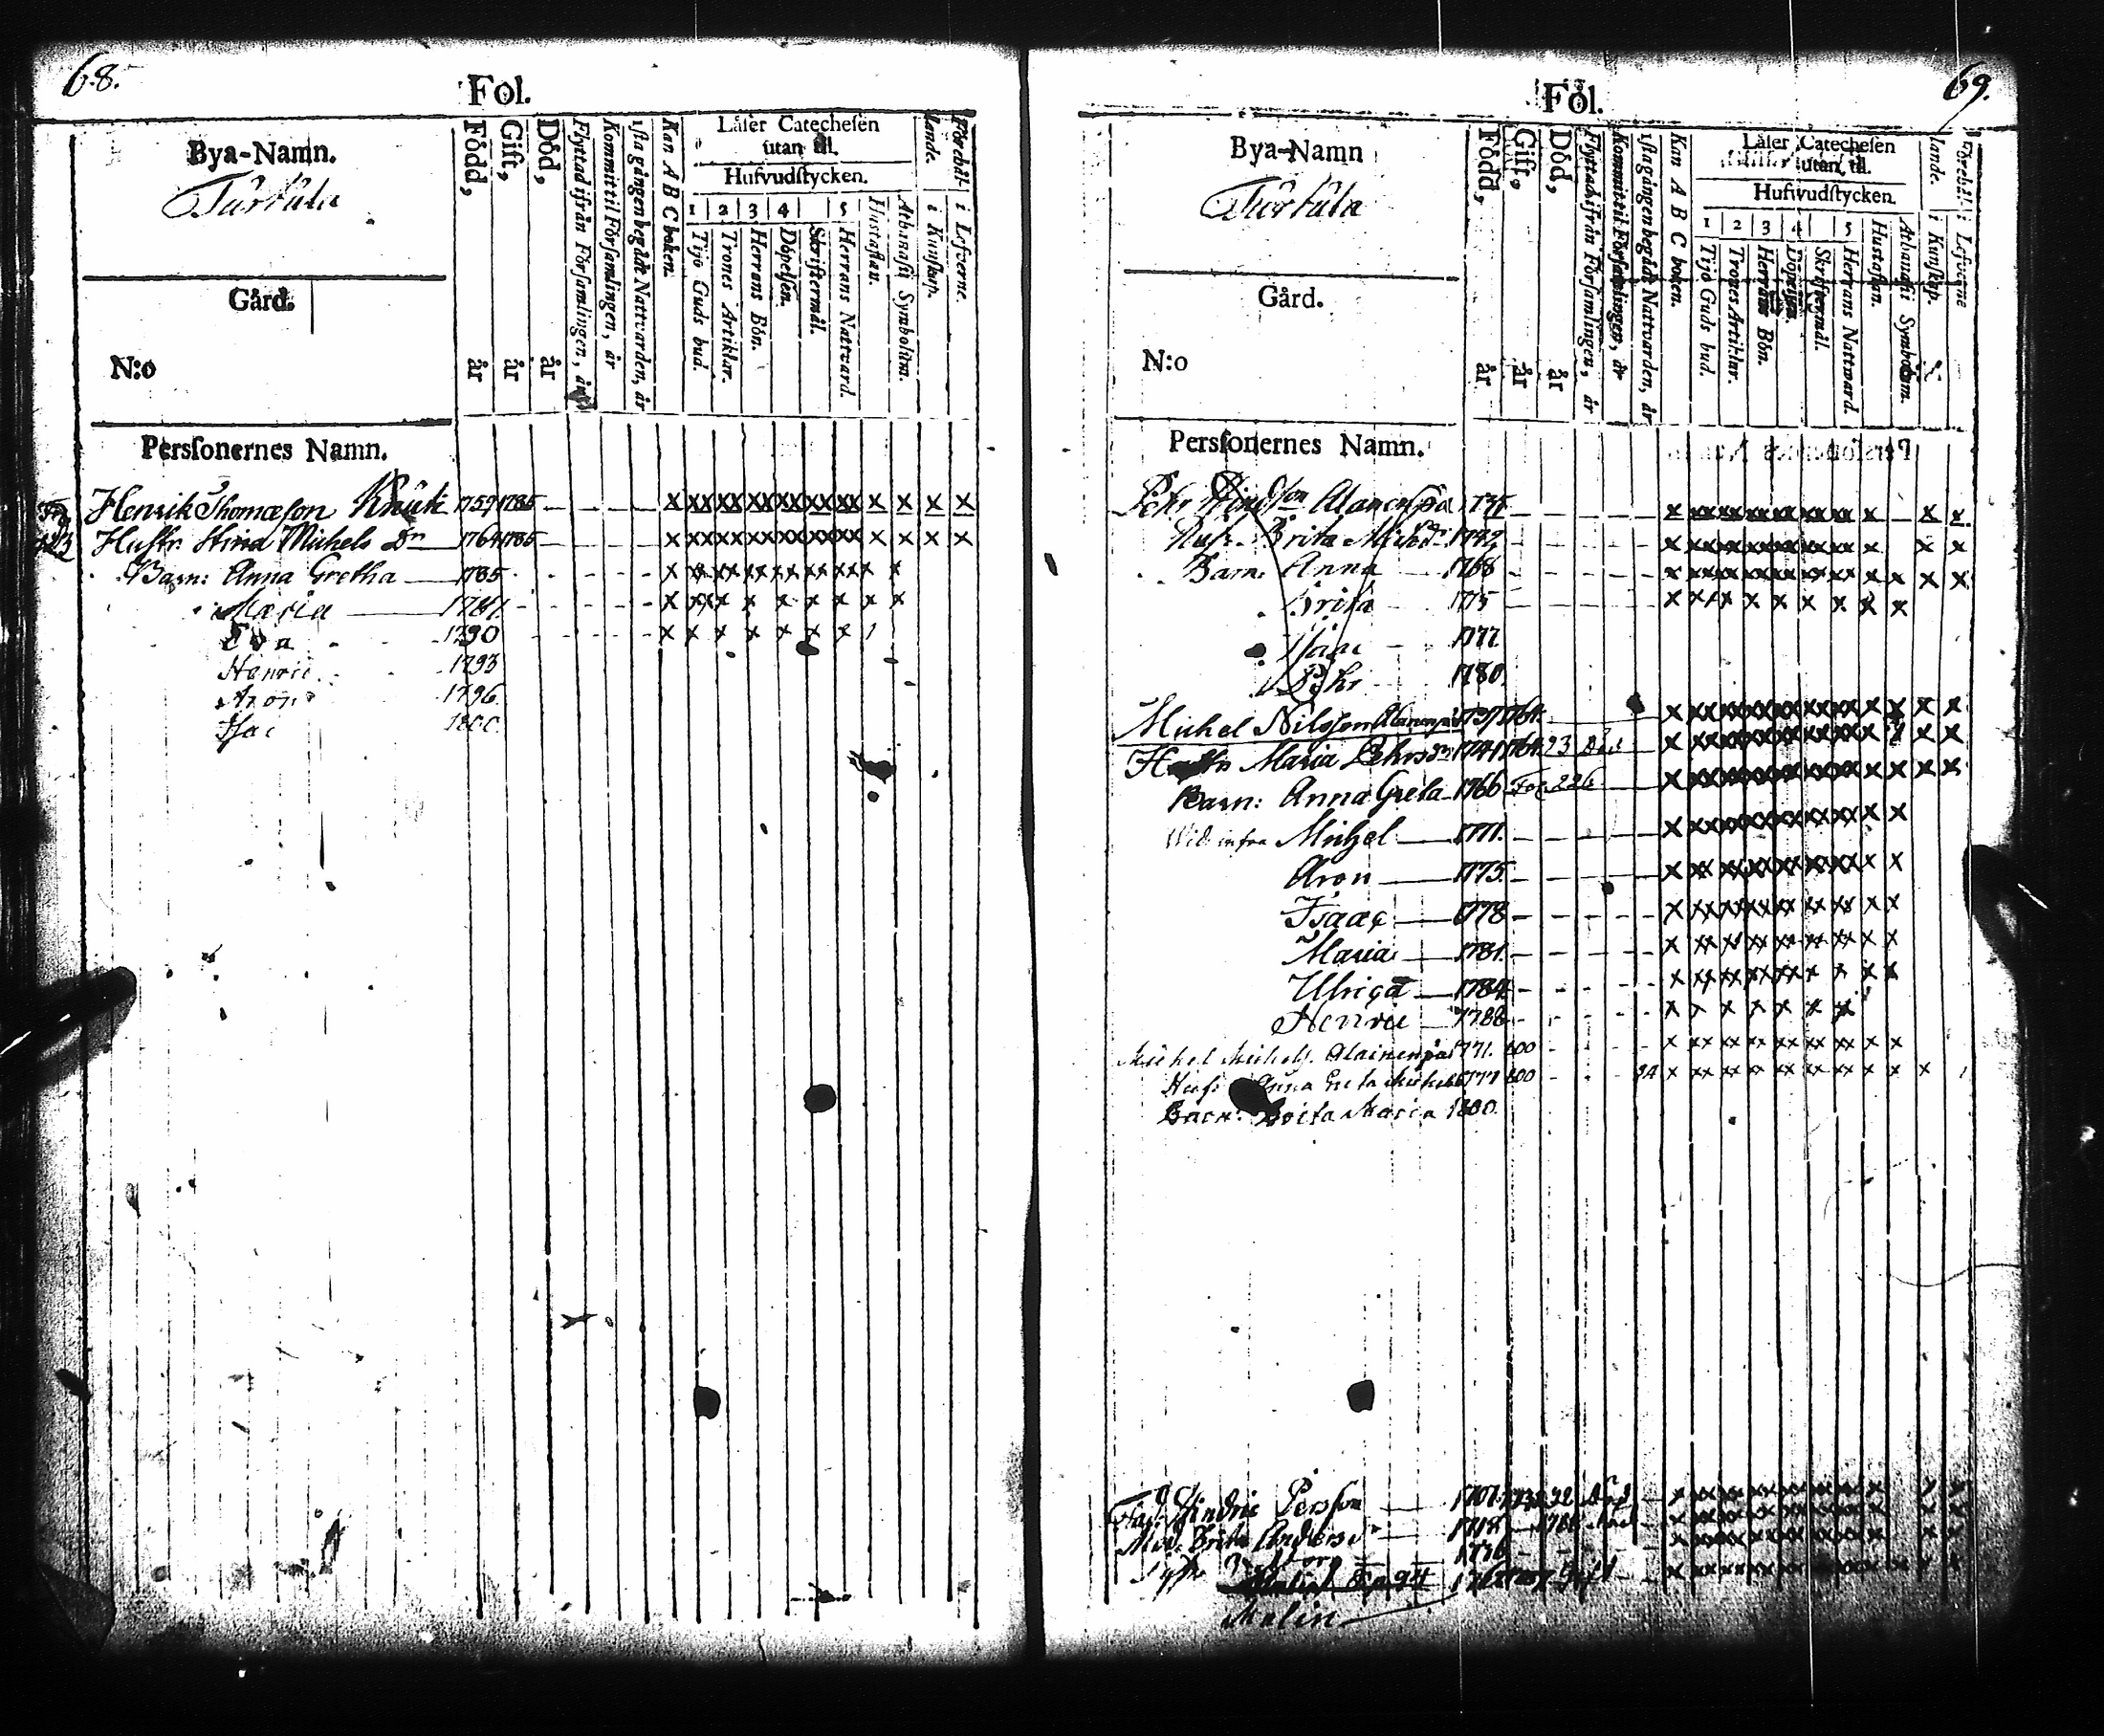 68.
Fol.
Bya-Namn.
Turkula
Gård.
N:o
Född, år
Gift, år
Död, år
Flyttad ifrån Förſamlingen, år
Kommit til Förſamlingen, år
1ſta gången begådt Nattvarden, år
Kan A B C boken.
Läſer Catecheſen
utan til.
Hufvudſtycken.
1 2 3 4 5
Tijo Guds bud.
Trones Artiklar.
Herrans Bön.
Döpelſen.
Skriftermål.
Herrans Nattvard.
Huſtaflan.
Athanaſii Symbolum.
Förehållande. i Kunſkap.
i Lefverne.
Perſonernes Namn.
Henrik Thomæſon Knuti 1759 1785
Huſtr. Stina Michels Dr 1764 1785
Barn: Anna Gretha 1785
Maria 1787
Eva 1790
Henric 1793
Aron 1796
Isac 1800
69.
Fol.
Bya-Namn
Turkula
Gård.
N:o
Född, år
Gift, år
Död, år
Flyttad ifrån Förſamlingen, år
Kommit til Förſamlingen, år
1ſta gången begådt Nattvarden, år
Kan A B C boken.
Läſer Catecheſen
utan til.
Hufwudſtycken.
1 2 3 4 5
Tijo Guds bud.
Trones Artiklar.
Herrans Bön.
Döpelſen.
Skriftermål.
Herrans Nattward.
Huſtaflan.
Athanaſii Symbolum.
Förehållande. i Kunſkap.
i Lefverne
Perſonernes Namn.
Pehr Alanenpä
Huſ. Brita 1742
Barn: Anna 1768
Brita 1775
Isac 1777
Pehr 1780
Michel Nilsſon Alanenpä 1737 1764
Huſtr. Maria Pehrsdr 1741 1764 93 Död
Barn: Anna Greta 1766 Fol. 226
Vid. infra Michel 1771.
Aron 1775.
Isaac 1778
Maria 1781.
Ulrica 1784
Henric 1788
Michel Michelſ. Alainenpä 1771. 800
Huſ. Anna Greta 1777 800
Barn: Brita Maria 1800.
Far: Hindric Perſſon 1707 92 Död
Mod. Brita Anders dr 1718
1762 Gift
Malin